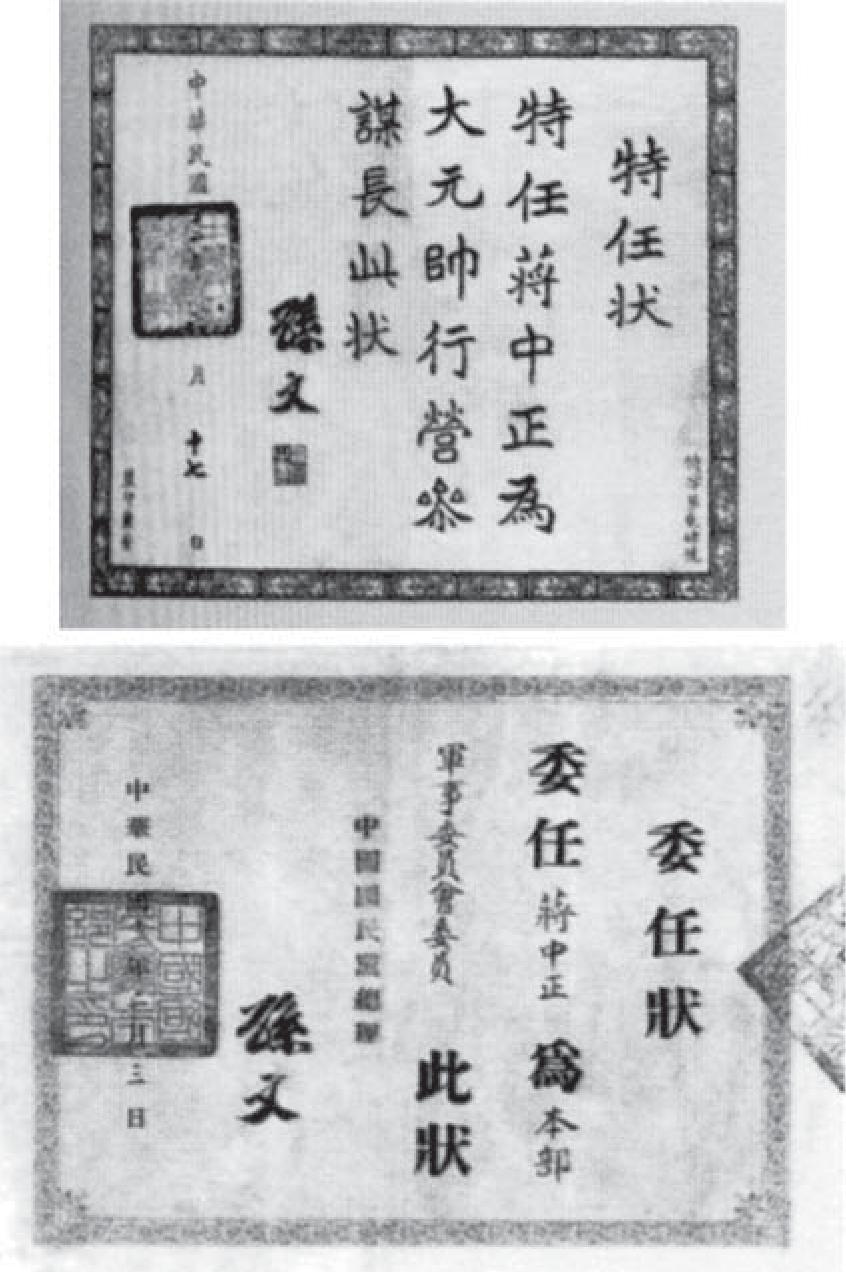 特任状
特任蔣中正為
大元帥行營參
謀長此状
孫文
中華民國 年 月十七日
委任狀
委任蔣中正為本部
軍事委員會委員 此狀
中國國民黨總理
孫文
中華民國 年 月三日